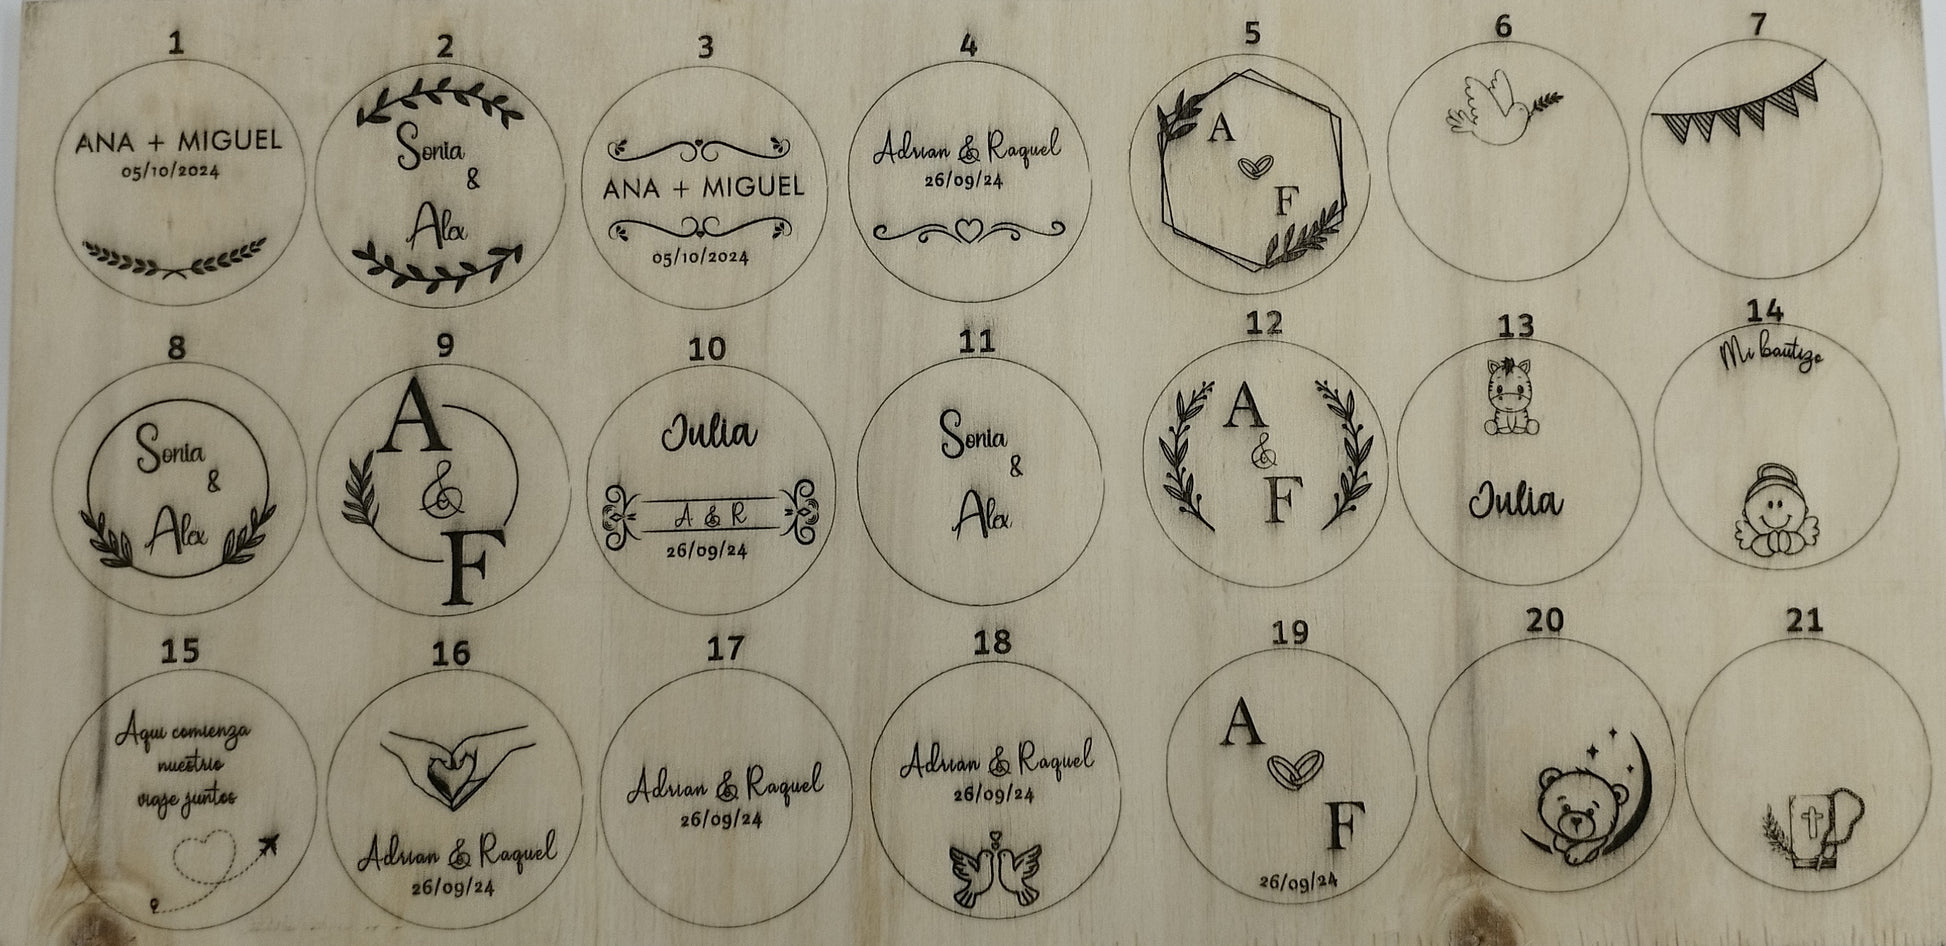 1
ANA + MIGUEL
05/10/2024
2
Sonia
&
Alex
3
ANA + MIGUEL
05/10/2024
4
Adrian & Raquel
26/09/24
5
A
F
6
7
8
Sonia
&
Alex
9
A
&
F
10
Julia
A & R
26/09/24
11
Sonia
&
Alex
12
A
&
F
13
Julia
14
Mi bautizo
15
Aqui comienza
nuestrio
viaje juntos
16
Adrian & Raquel
26/09/24
17
Adrian & Raquel
26/09/24
18
Adrian & Raquel
26/09/24
19
A
F
26/09/24
20
21